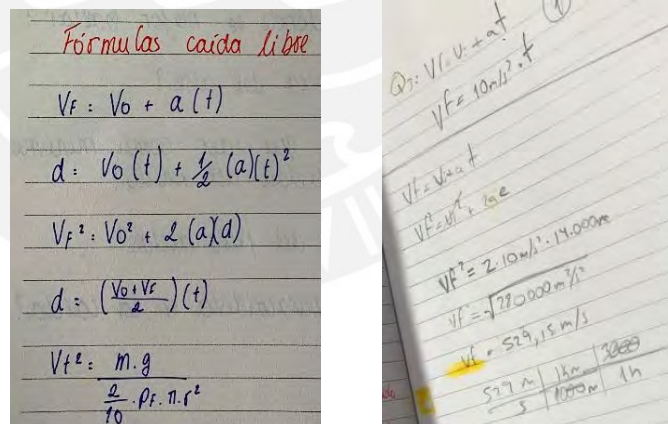 Fórmulas caída libre
VF: Vo + a (t)
d: Vo (t) + 1/2 (a)(t)²
VF²: Vo² + 2 (a)(d)
d: (Vo + VF / 2) (t)
Vt²: m.g / 2/10 . PF. π. r²
1
Vf = Vi + at
Vf = 10m/s². t
Vf = Vi + at
Vf² = 2.10m/s². 14.000m
Vf = √280000m²/s²
Vf = 529,15 m/s
529 m | 1km |
s | 1000m | 1h